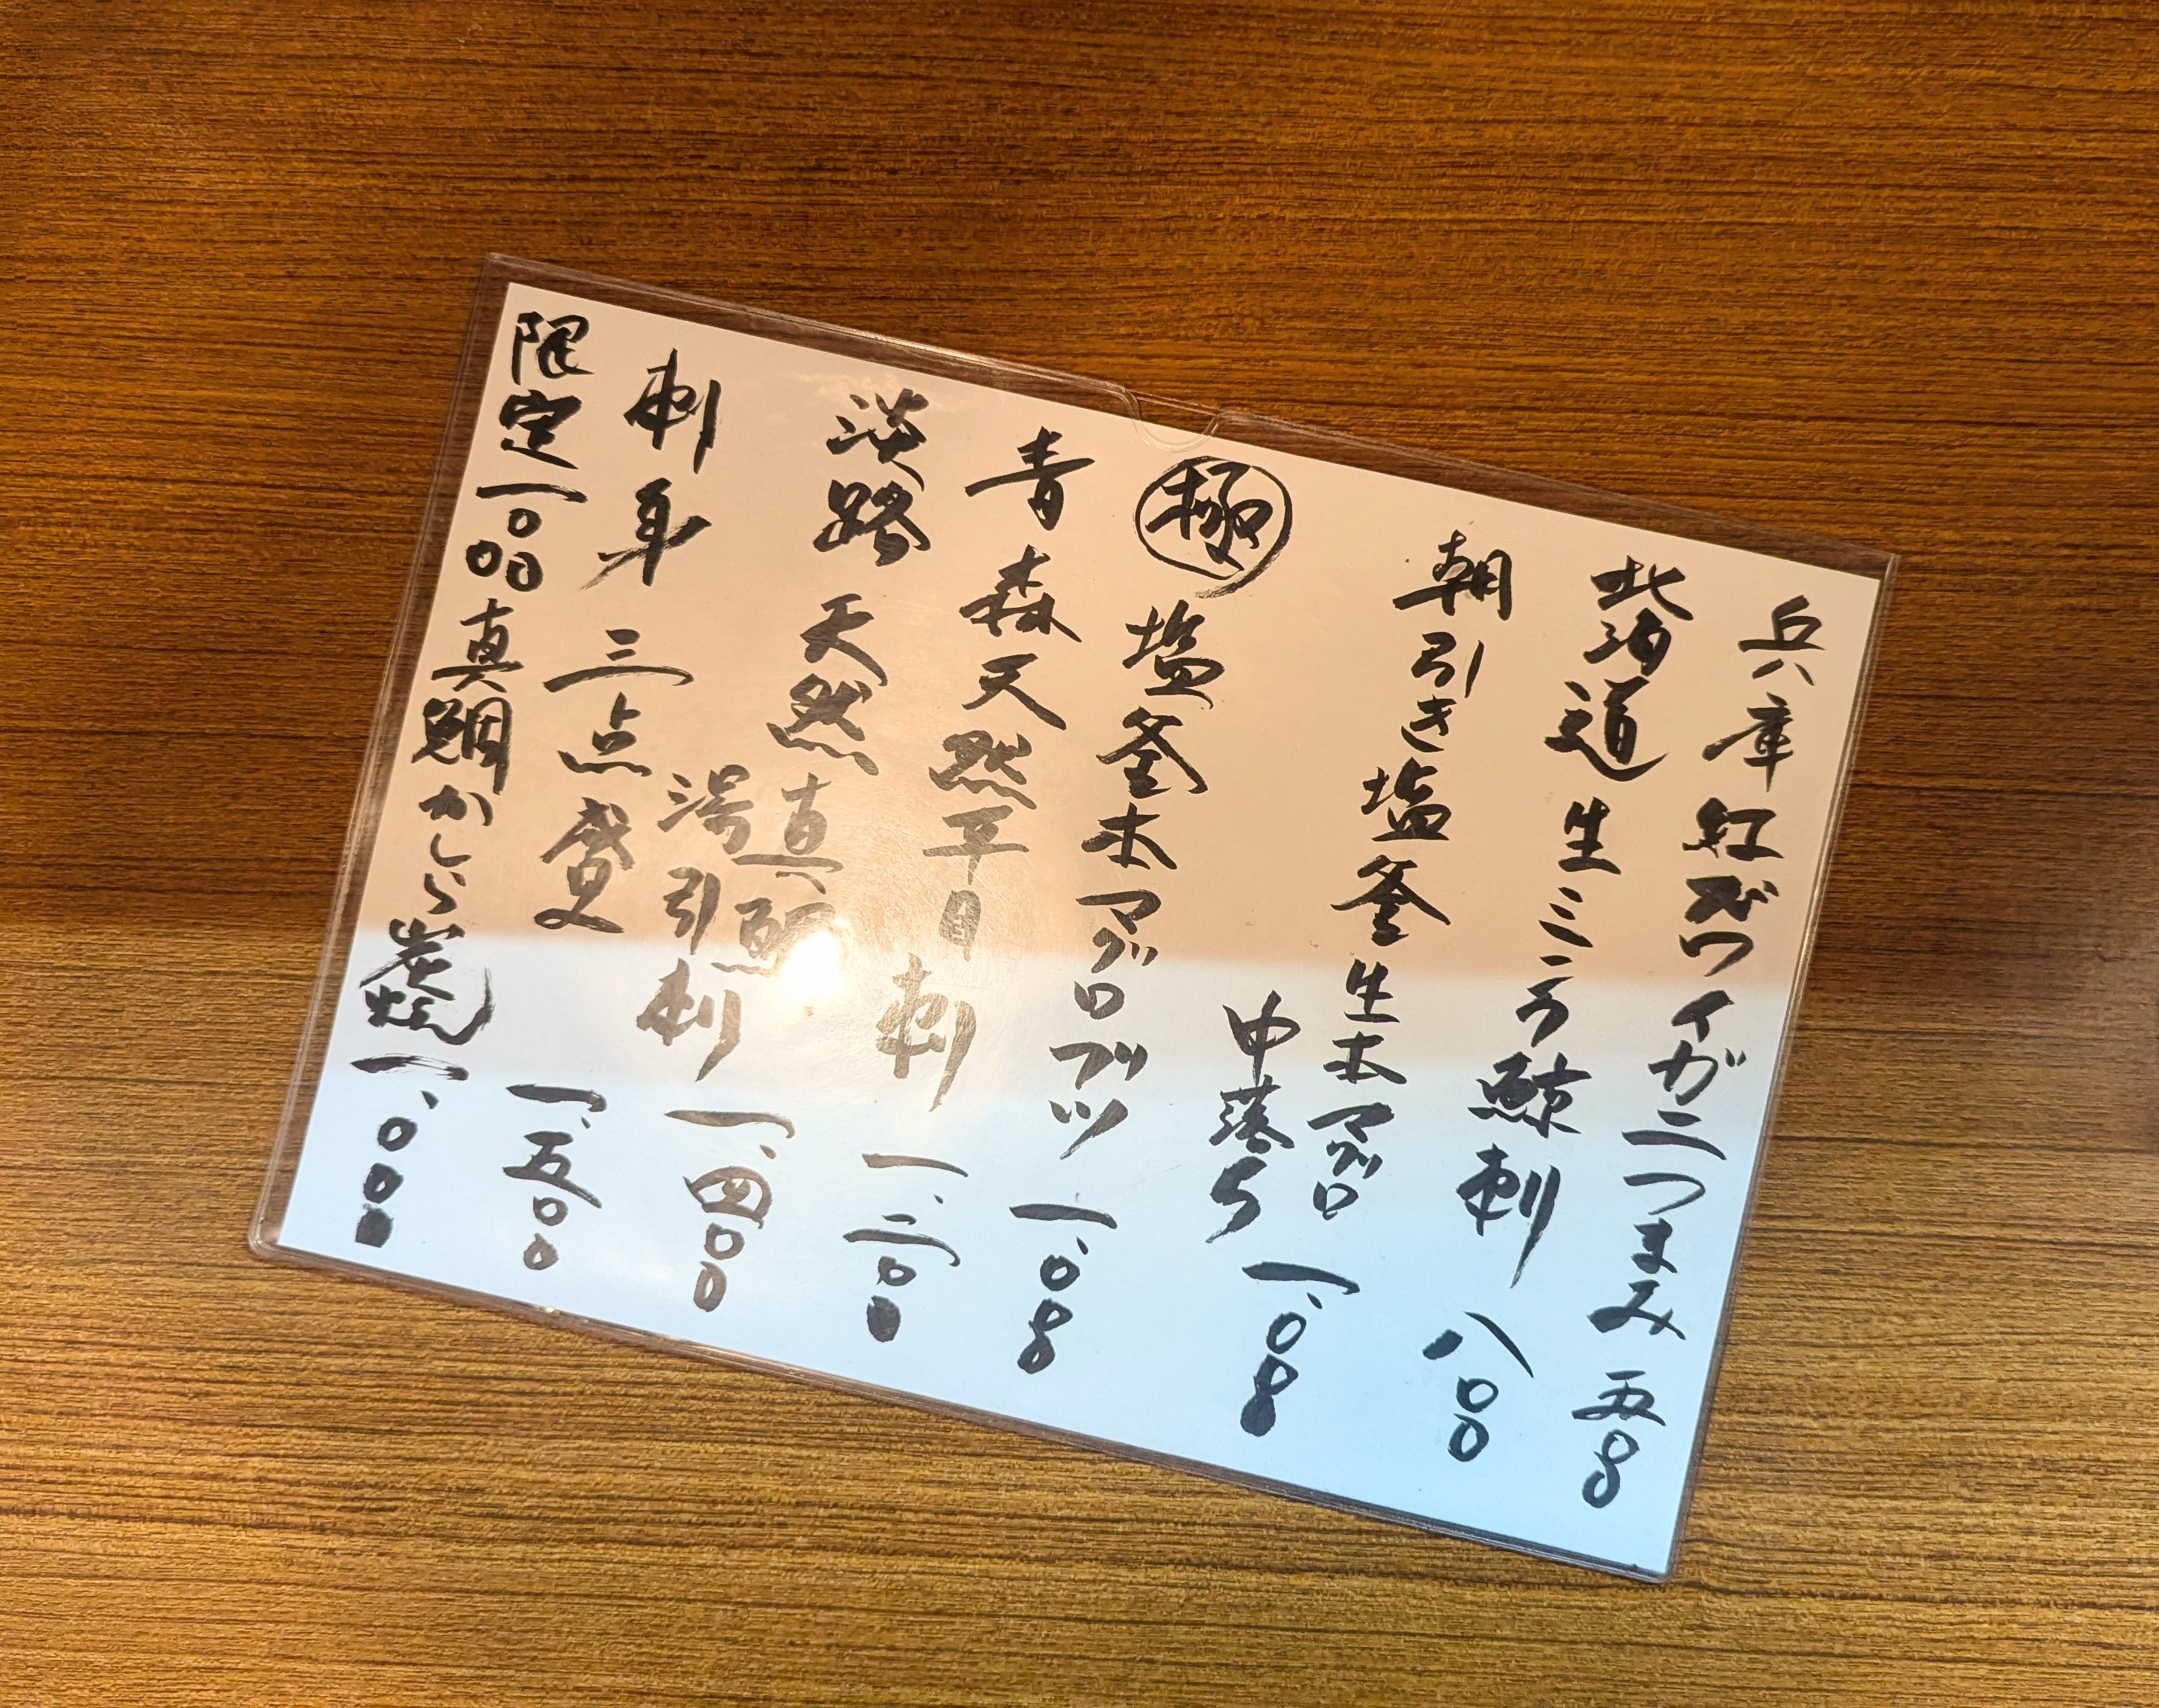 兵庫 紅ズワイガニつまみ 五〇〇
北海道 生ミンク鯨刺 八〇〇
朝引き塩釜生本マグロ
中落ち 一、〇〇〇
極 塩釜本マグロブツ 一、〇〇〇
青森天然平目刺 一、二〇〇
淡路 天然真鯛
湯引刺 一、四〇〇
刺身 三点盛 一、五〇〇
限定一〇〇〇 真鯛かしら炭焼 一、〇〇〇